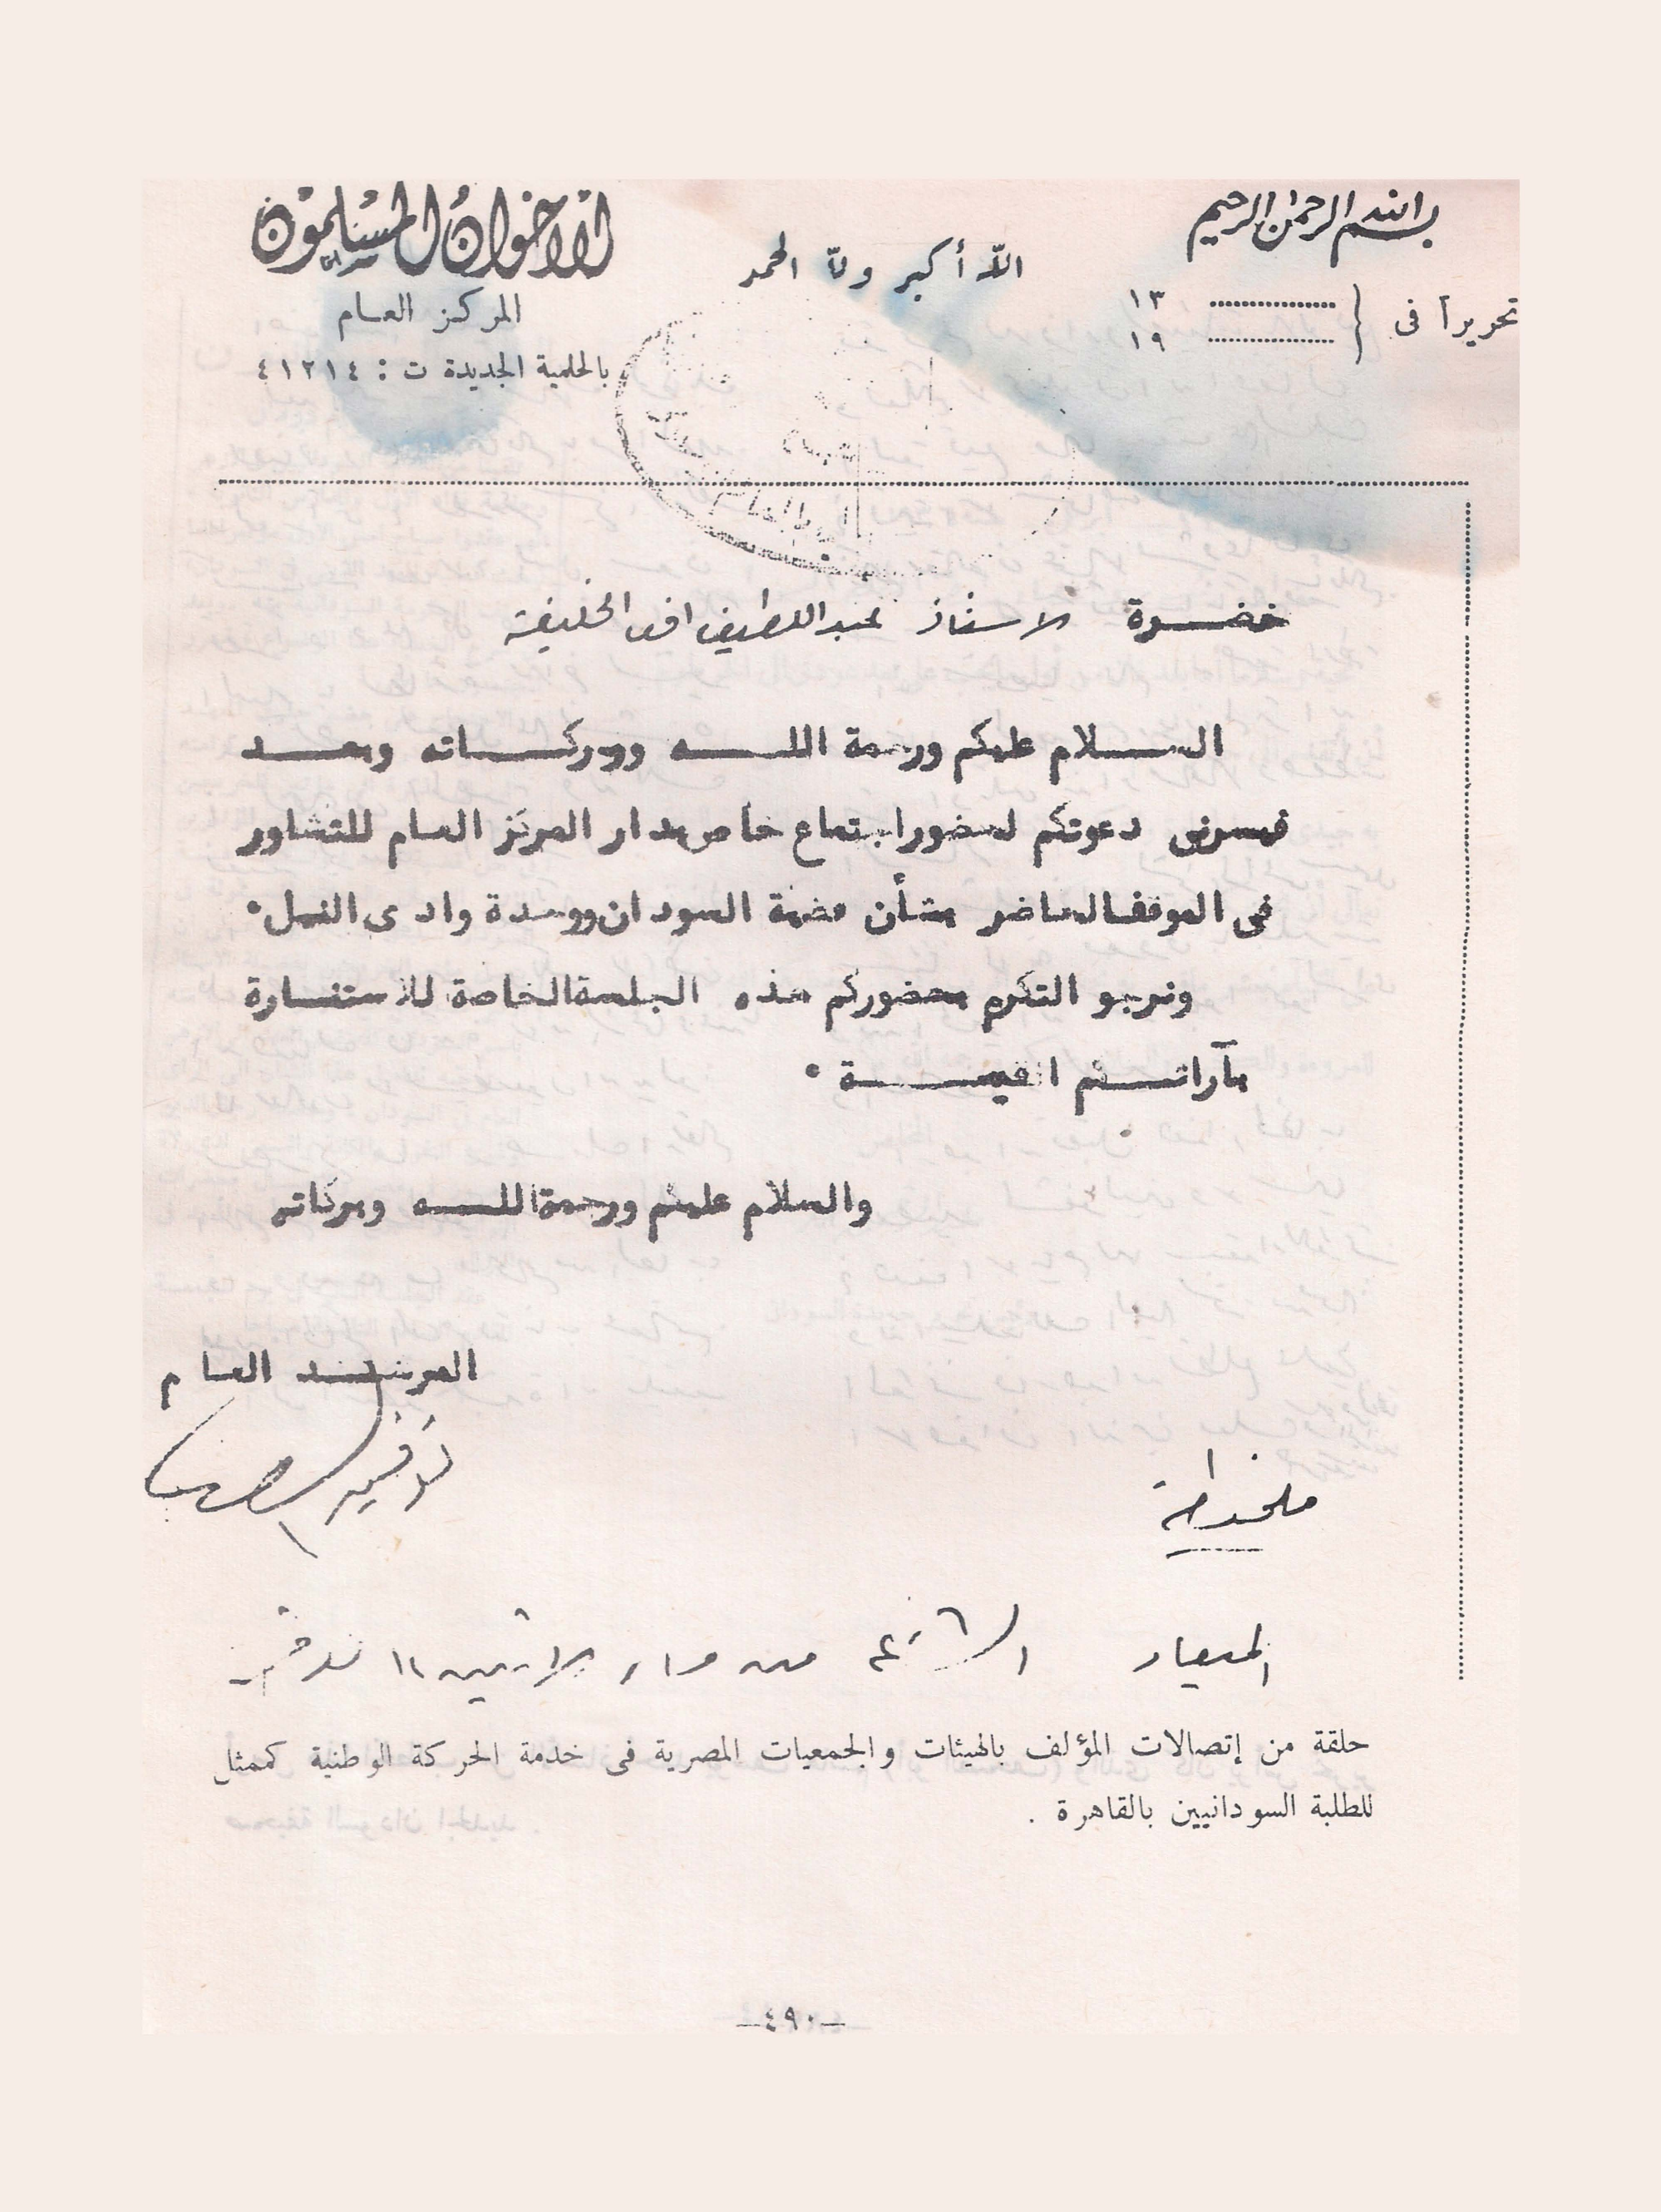 بسم الله الرحمن الرحيم
الله أكبر ولله الحمد
الاخوان المسلمون
المركز العام
بالحلمية الجديدة ت : ٤١٢١٤
تحريرا فى { ............ ١٣
............ ١٩
حضرة الاستاذ عبد اللطيف افندى الخليفة
السلام عليكم ورحمة الله وبركاته وبعد
فيسرنى دعوتكم لحضور اجتماع خاص بدار المركز العام للتشاور
فى الموقف الحاضر بشأن قضية السودان ووحدة وادى النيل .
ونرجو التكرم بحضوركم هذه الجلسة الخاصة للاستنارة
بآرائكم القيمة .
والسلام عليكم ورحمة الله وبركاته
المرشد العام
ملحوظة
الميعاد من مساء الاثنين
حلقة من إتصالات المؤلف بالهيئات والجمعيات المصرية فى خدمة الحركة الوطنية كممثل
للطلبة السودانيين بالقاهرة .
—٤٩٠—